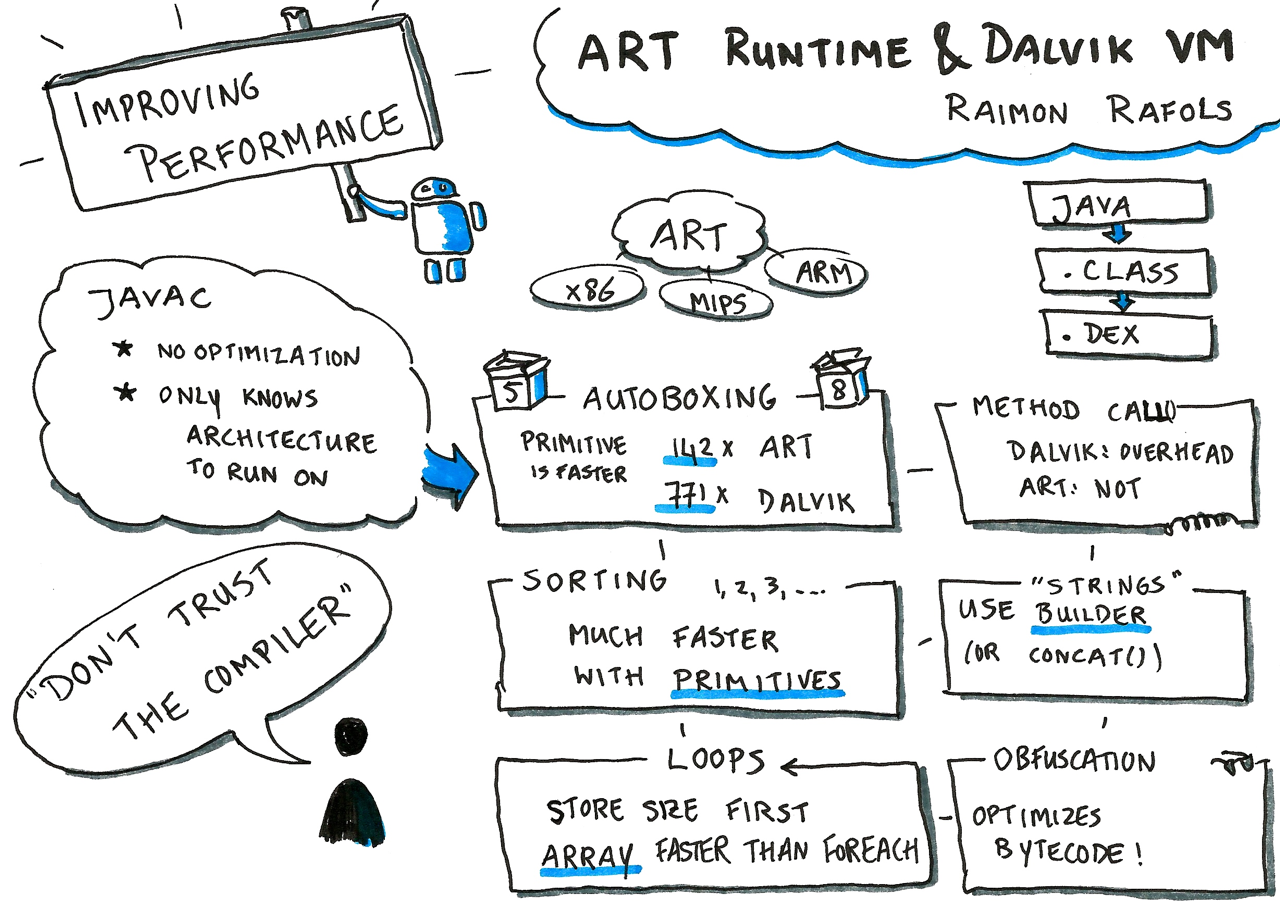 IMPROVING
PERFORMANCE
ART RUNTIME & DALVIK VM
RAIMON RAFOLS
JAVA
.CLASS
.DEX
ART
X86
MIPS
ARM
JAVAC
★ NO OPTIMIZATION
★ ONLY KNOWS
ARCHITECTURE
TO RUN ON
5
AUTOBOXING
8
PRIMITIVE
IS FASTER
142X ART
771X DALVIK
METHOD CALL()
DALVIK: OVERHEAD
ART: NOT
"DON'T TRUST
THE COMPILER"
SORTING 1, 2, 3, ...
MUCH FASTER
WITH PRIMITIVES
"STRINGS"
USE BUILDER
(OR CONCAT())
LOOPS
STORE SIZE FIRST
ARRAY FASTER THAN FOREACH
OBFUSCATION
OPTIMIZES
BYTECODE!